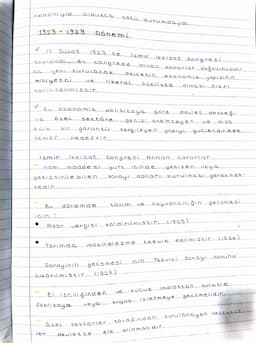 nedeniyle oldukça kötü durumdaydı.
1923 - 1929 Dönemi
✓ 17 Şubat 1923'te İzmir İktisat Kongresi
toplandı. Bu kongrede alınan kararlar doğrultusunda
yeni kurulacak devletin ekonomik yapısının
milliyetçi ve liberal özellikte olması fikri
benimsenmiştir.
✓ Bu ekonomik politikaya göre devlet desteği
ile özel sektöre geçişi
açık bir görüntü sergileyen yapıyı güçlendirmek
temel hedeftir.
İzmir İktisat Kongresi Alınan Kararlar
- Ham maddesi yurt içinde yetişen veya
yetiştirilebilen sanayi dalları kurulması gerekmek-
tedir.
- Bu dönemde tarım ve hayvancılığın gelişmesi
için:
• Aşar vergisi kaldırılmıştır. (1925)
• Tarımda makineleşme teşvik edilmiştir. (1926)
- Sanayinin gelişmesi için Teşvik-i Sanayi kanunu
çıkarılmıştır. (1927)
- El işçiliğinden ve küçük imalattan süratle
fabrikaya veya büyük işletmeye geçilmelidir.
- Özel sektörler tarafından kurulamayan
ler devletçe ele alınmalıdır.